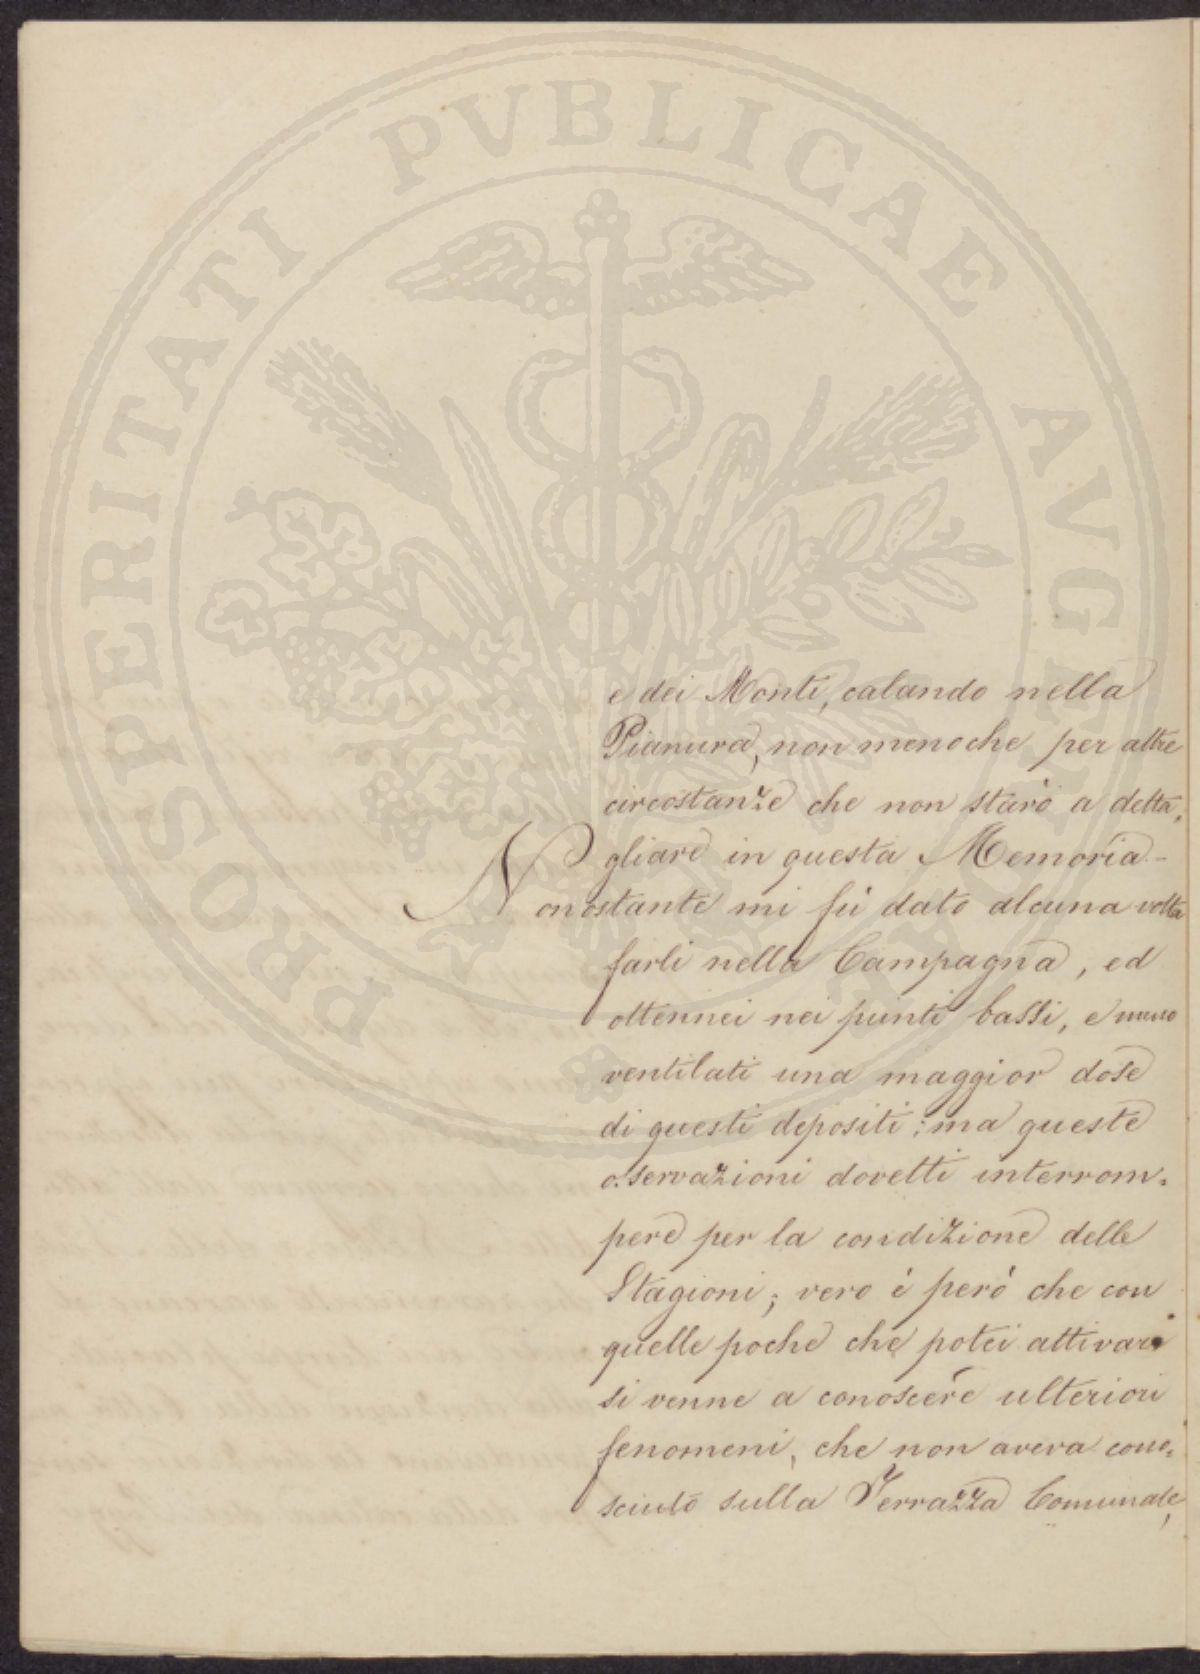 PROSPERITATI PVBLICAE AVGENDAE
e dei Monti, calando nella
Pianura, non menoche per altre
circostanze che non starò a detta,
gliare in questa Memoria -
Nonostante mi fù dato alcuna volta
farli nella Campagna, ed
ottennei nei punti bassi, e meno
ventilati una maggior dose
di questi depositi; ma queste
osservazioni dovetti interrom=
pere per la condizione delle
Stagioni; vero è però che con
quelle poche che potei attivare
si venne a conoscere ulteriori
fenomeni, che non aveva cono=
sciuto sulla Terrazza Comunale,